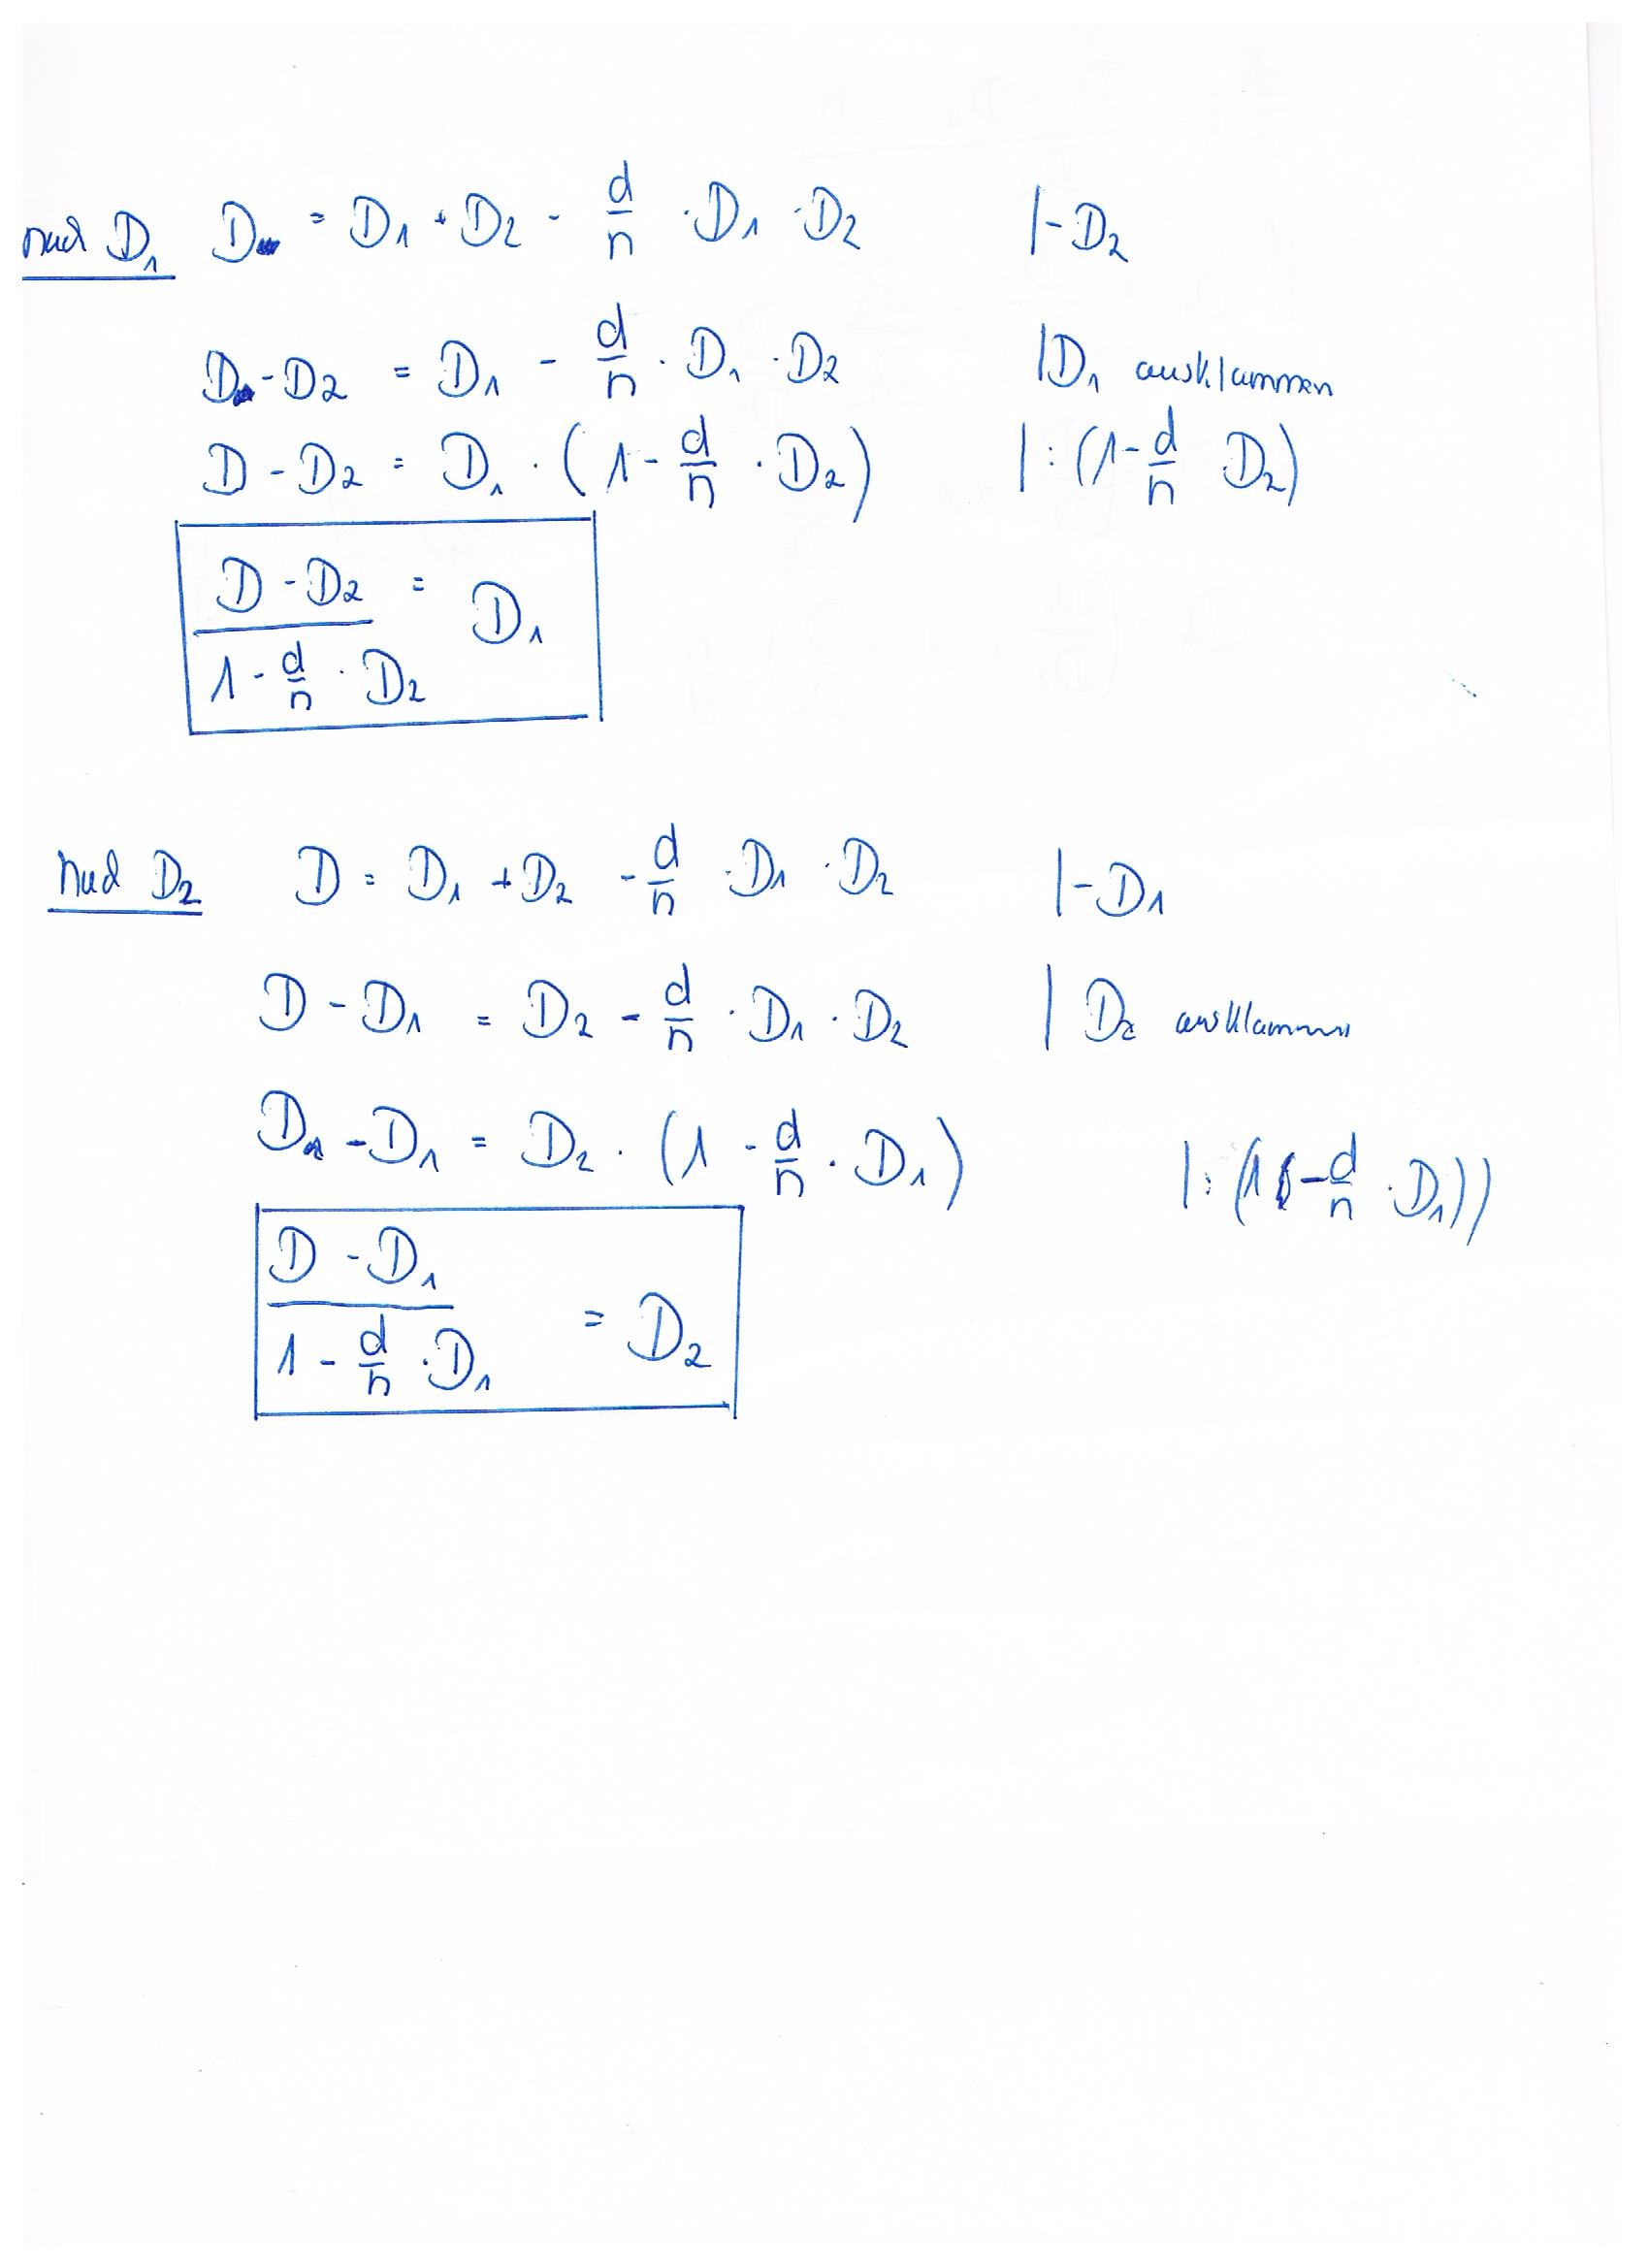 nach D₁ D = D₁ + D₂ - d/n · D₁ · D₂ |-D₂
D - D₂ = D₁ - d/n · D₁ · D₂ |D₁ ausklammen
D - D₂ = D₁ · (1 - d/n · D₂) |: (1 - d/n D₂)
(D - D₂)/(1 - d/n · D₂) = D₁
Nach D₂ D = D₁ + D₂ - d/n · D₁ · D₂ |-D₁
D - D₁ = D₂ - d/n · D₁ · D₂ | D₂ ausklammen
D - D₁ = D₂ · (1 - d/n · D₁) |: (1 - d/n · D₁))
(D - D₁)/(1 - d/n · D₁) = D₂